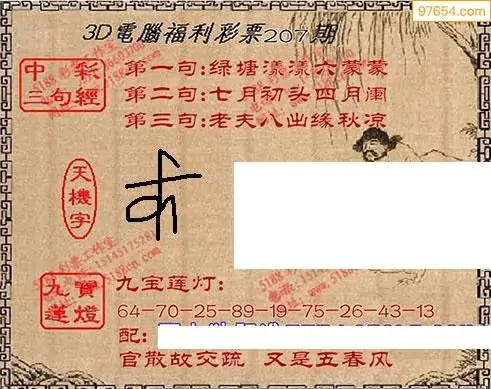 97654.com
3D電腦福利彩票207期
中彩三句經
第一句:绿塘漾漾六蒙蒙
第二句:七月初头四月阑
第三句:老夫八出缘秋凉
天機字
九寶蓮燈
九宝莲灯:
64-70-25-89-19-75-26-43-13
配:
官散故交疏 又是五春风